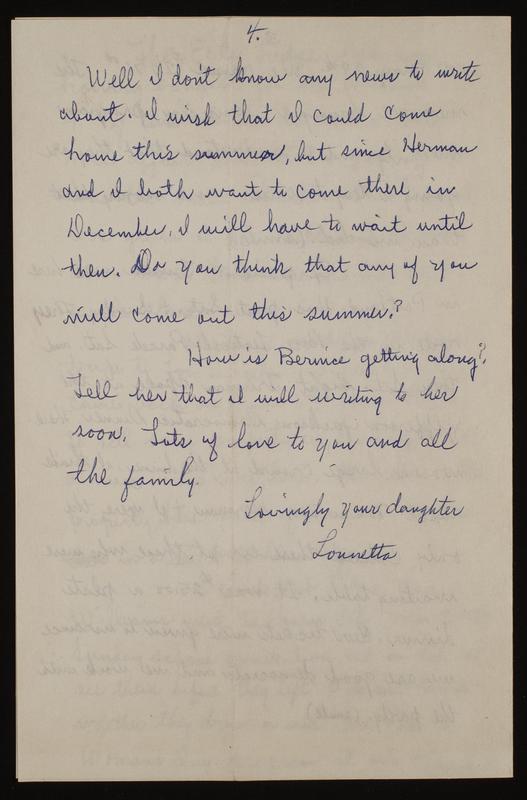 4.
Well I don't know any news to write
about. I wish that I could come
home this summer, but since Herman
and I both want to come there in
December, I will have to wait until
then. Do you think that any of you
will come out this summer?
How is Bernice getting along?
Tell her that I will writing to her
soon. Lots of love to you and all
the family.
Lovingly your daughter
Lounetta